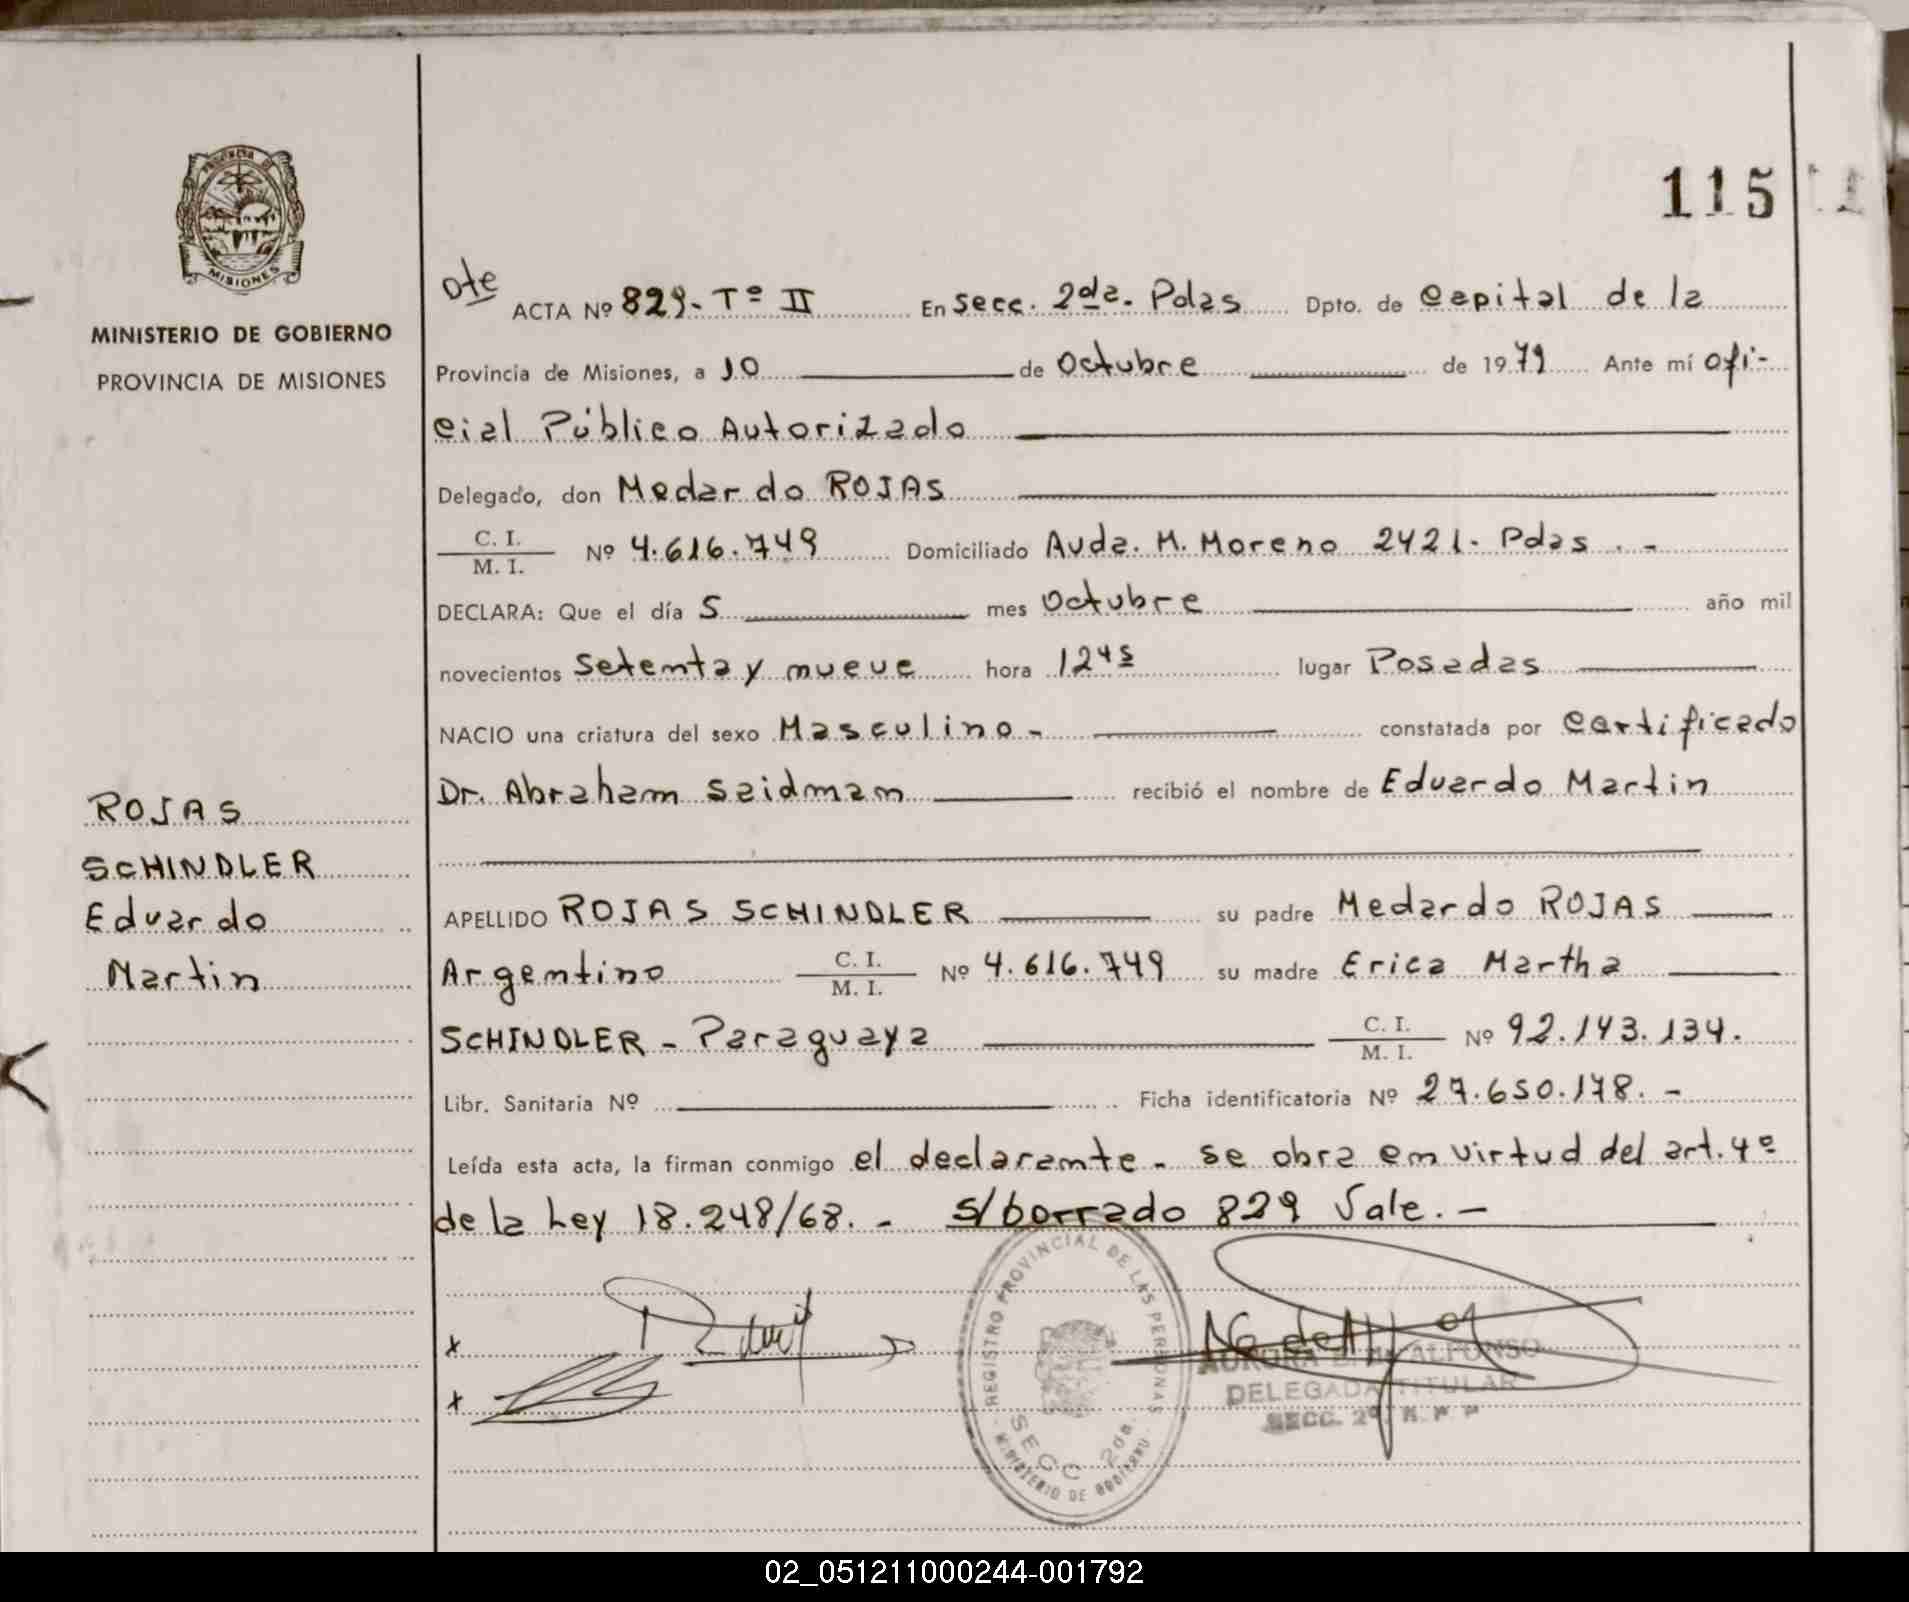 115
PROVINCIA DE
MISIONES
MINISTERIO DE GOBIERNO
PROVINCIA DE MISIONES
Dte ACTA Nº 829-Tº II En Secc. 2da. Pdas Dpto. de Capital de la
Provincia de Misiones, a 10 de Octubre de 1979 Ante mí ofi-
cial Público Autorizado
Delegado, don Medardo ROJAS
C. I.
M. I. Nº 4.616.749 Domiciliado Avda. M. Moreno 2421- Pdas . -
DECLARA: Que el día 5 mes Octubre año mil
novecientos Setenta y nueve hora 12 45 lugar Posadas
NACIO una criatura del sexo Masculino - constatada por Certificado
Dr. Abraham Saidman recibió el nombre de Eduardo Martin
APELLIDO ROJAS SCHINDLER su padre Medardo ROJAS
Argentino C. I.
M. I. Nº 4.616.749 su madre Erica Martha
SCHINDLER - Paraguaya C. I.
M. I. Nº 92.143.134.
Libr. Sanitaria Nº Ficha identificatoria Nº 27.650.178. -
Leída esta acta, la firman conmigo el declarante - se obra en virtud del art. 4º
de la Ley 18.248/68. - s/borrado 829 Vale. -
ROJAS
SCHINDLER
Eduardo
Martin
REGISTRO PROVINCIAL DE LAS PERSONAS
SECC 2da.
MINISTERIO DE GOBIERNO
ALFONSO
DELEGADA TITULAR
SECC. 2ª
02_051211000244-001792